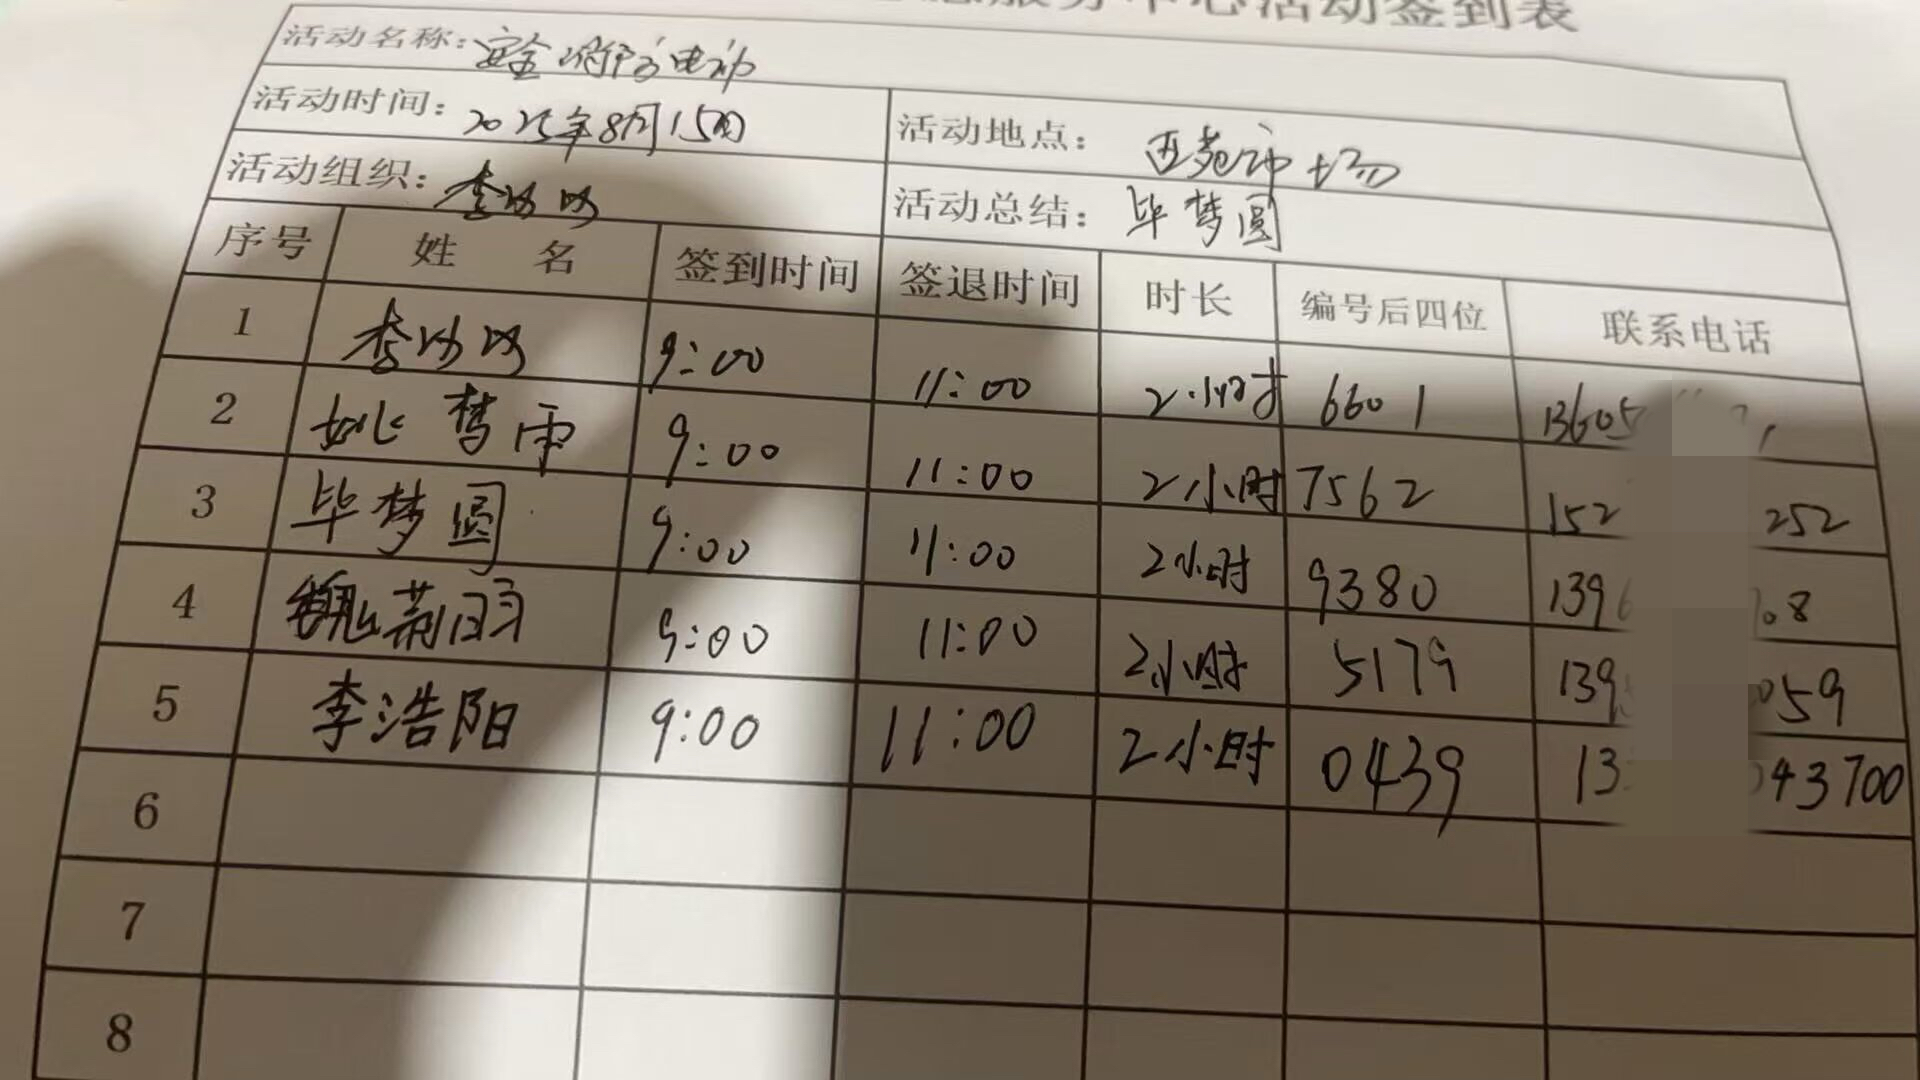 服务中心活动签到表
活动名称：安全消防
活动时间：2025年8月15日 活动地点：西苑市场
活动组织：李 活动总结：毕梦圆
序号 姓 名 签到时间 签退时间 时长 编号后四位 联系电话
1 李 9:00 11:00 2小时 6601 13605
2 姚梦雨 9:00 11:00 2小时 7562 152 252
3 毕梦圆 9:00 11:00 2小时 9380 139 08
4 魏 9:00 11:00 2小时 5179 139 059
5 李浩阳 9:00 11:00 2小时 0439 13 43700
6
7
8